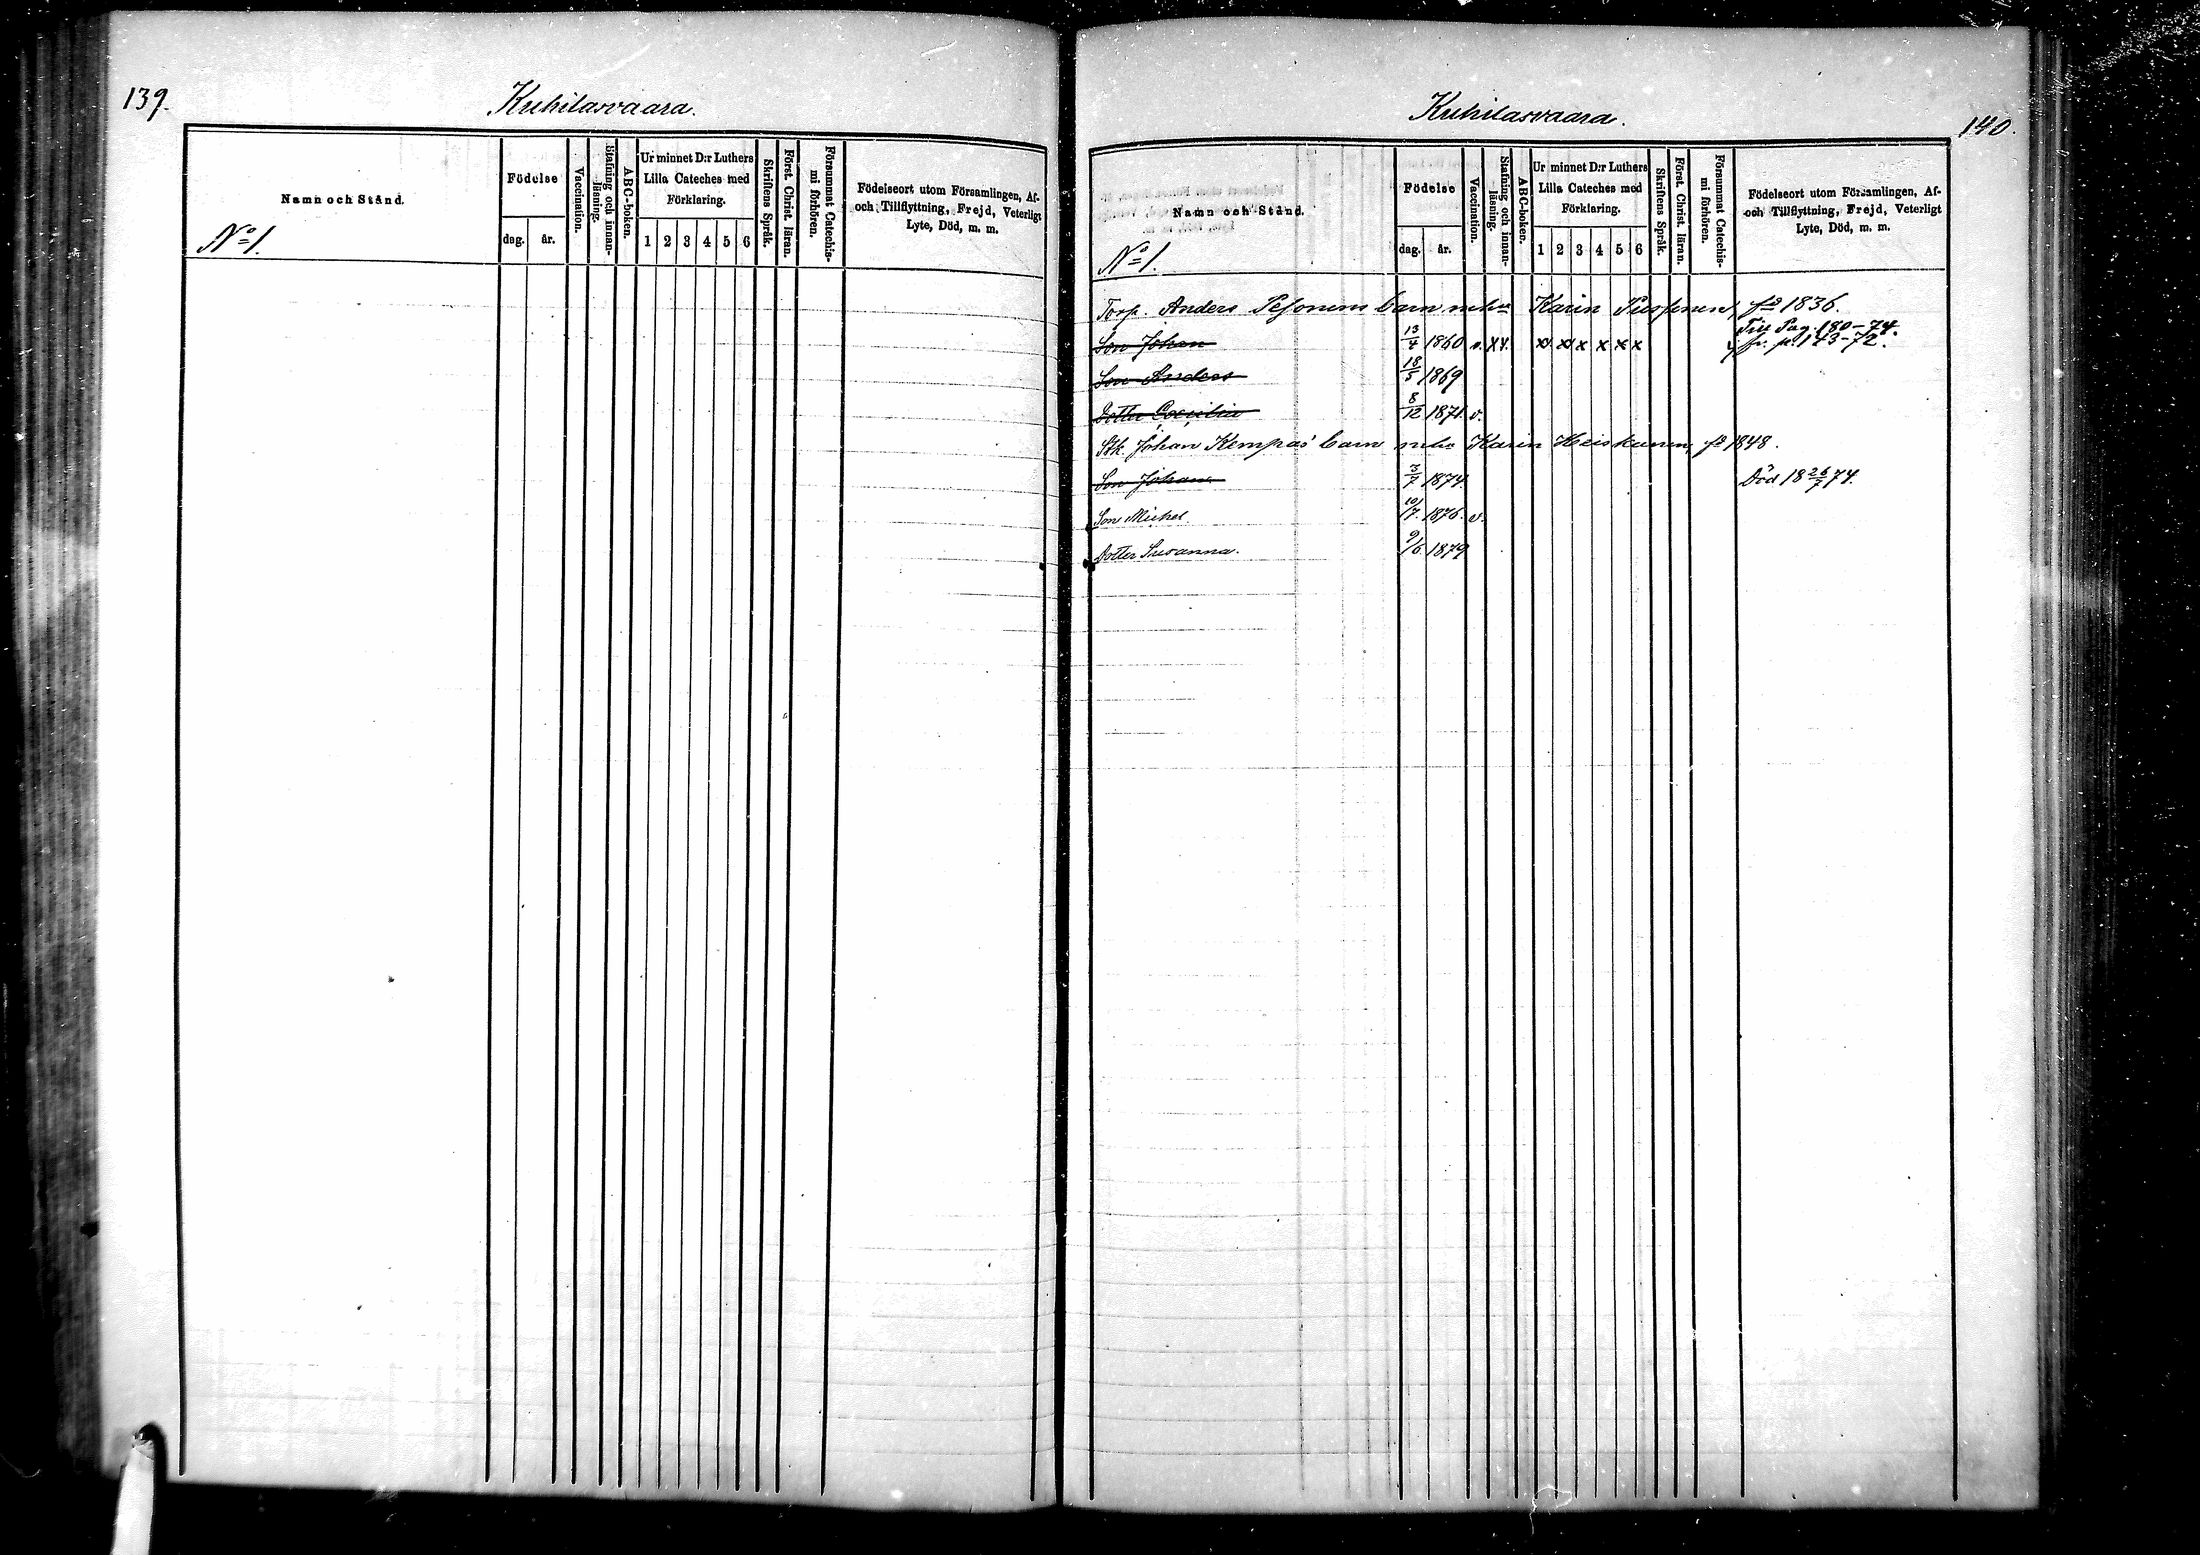 139.
Kuhilasvaara.
Namn och Stånd.
Födelse
dag. år.
Vaccination.
Stafning och innanläsning.
ABC-boken.
Ur minnet D:r Luthers
Lilla Cateches med
Förklaring.
1 2 3 4 5 6
Skriftens Språk.
Först. Christ. läran.
Försummat Catechismi förhören.
Födelseort utom Församlingen, Af-
och Tillflyttning, Frejd, Veterligt
Lyte, Död, m. m.
No 1.
Kuhilasvaara.
140.
Namn och Stånd.
Födelse
dag. år.
Vaccination.
Stafning och innanläsning.
ABC-boken.
Ur minnet D:r Luthers
Lilla Cateches med
Förklaring.
1 2 3 4 5 6
Skriftens Språk.
Först. Christ. läran.
Försummat Catechismi förhören.
Födelseort utom Församlingen, Af-
och Tillflyttning, Frejd, Veterligt
Lyte, Död, m. m.
No 1.
Torp. Anders Pesonens barn Karin fd 1836.
Till Pag. 180-74.
Son Johan 13/4 1860 v. x x x x x x fr. p. 143-72.
Son Anders 18/5 1869
Dotter Cecilia 8/12 1871 v.
Johan Kempas' barn Karin Heiskanen, fd 1848.
Son Johan 3/7 1874. Död 18 26/7 74.
Son Michel 10/7. 1876. v.
Dotter Susanna. 9/6 1879